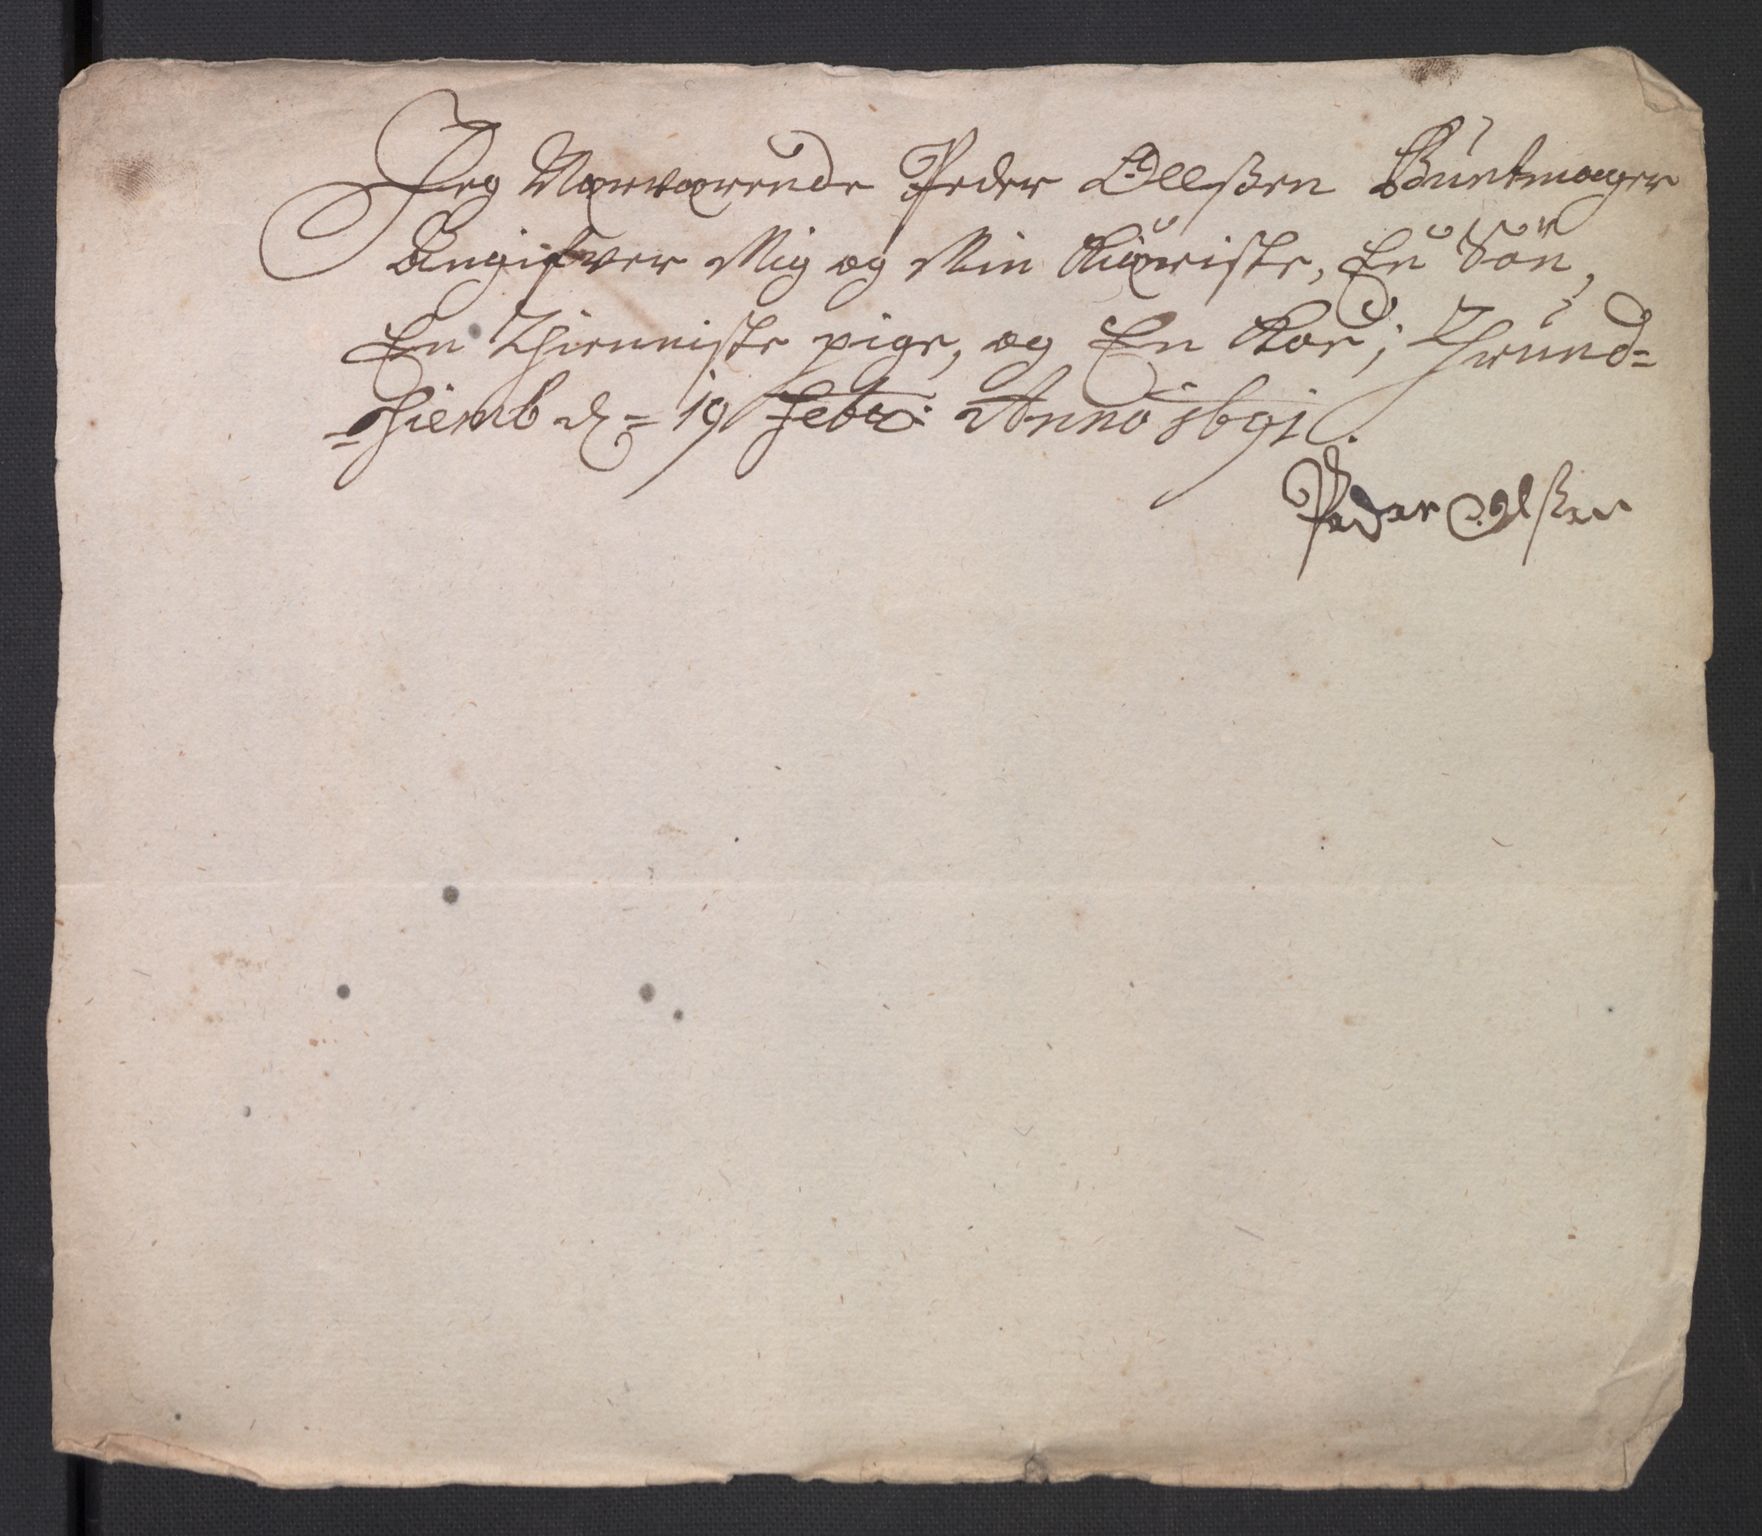 Jeg Nærværende Peder Ollßen Buntmager
Angifver Mig og Min Kiæriste, En Søn,
En Thienniste pige, og En Koe; Thrund=
=hiemb d= 19 Febr: Anno 1691.
Peder Olßen